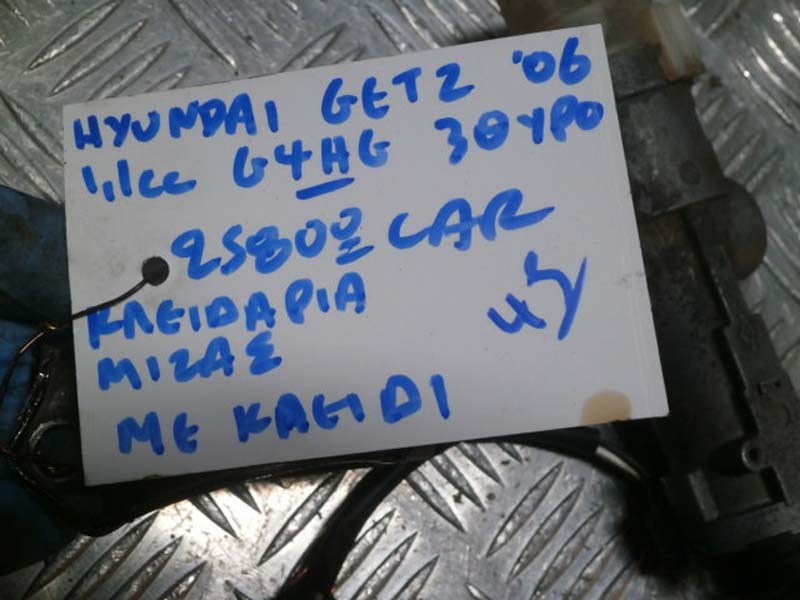 HYUNDAI GETZ '06
1,1cc G4HG 3ΘΥΡΟ
25800 CAR
ΚΛΕΙΔΑΡΙΑ
ΜΙΖΑΣ
ΜΕ ΚΛΕΙΔΙ